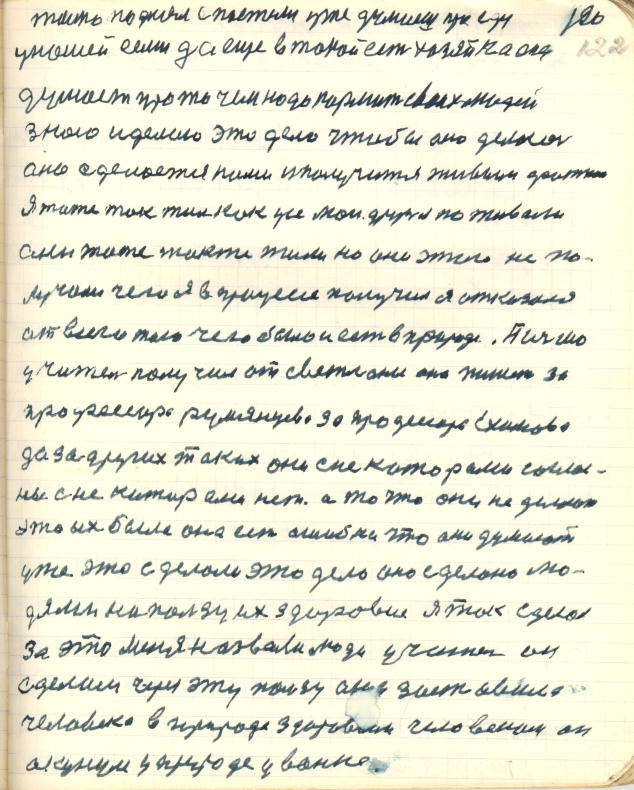 120
122
у нашей семи да еще в такой есть хозяйка она
думает про то чем надо кормит своих людей
знаю и делаю это дело чтобы оно делалос
оно сделается нами и получится живым фактом
Я тоже так жил как усе мои друзя поживали
они тоже такте жили но они этого не по-
лучали чего я в процессе получил я отказался
от всего того чего было и есть в природе. Письмо
учител получил от светланы она пишет за
професора румянцева за професора Ехимова
да за других таких они с не каторами соглас-
ны с не каторами нет. а то что они не делают
это ых было она ест ошибки что они думают
уже это сделали это дело оно сделано лю-
дями на ползу их здоровие я так сделал
за это меня назвали люди учител он
сделали через эту ползу они заставила
человека в природе здоровым человеком он
окунум у природе у ванне.